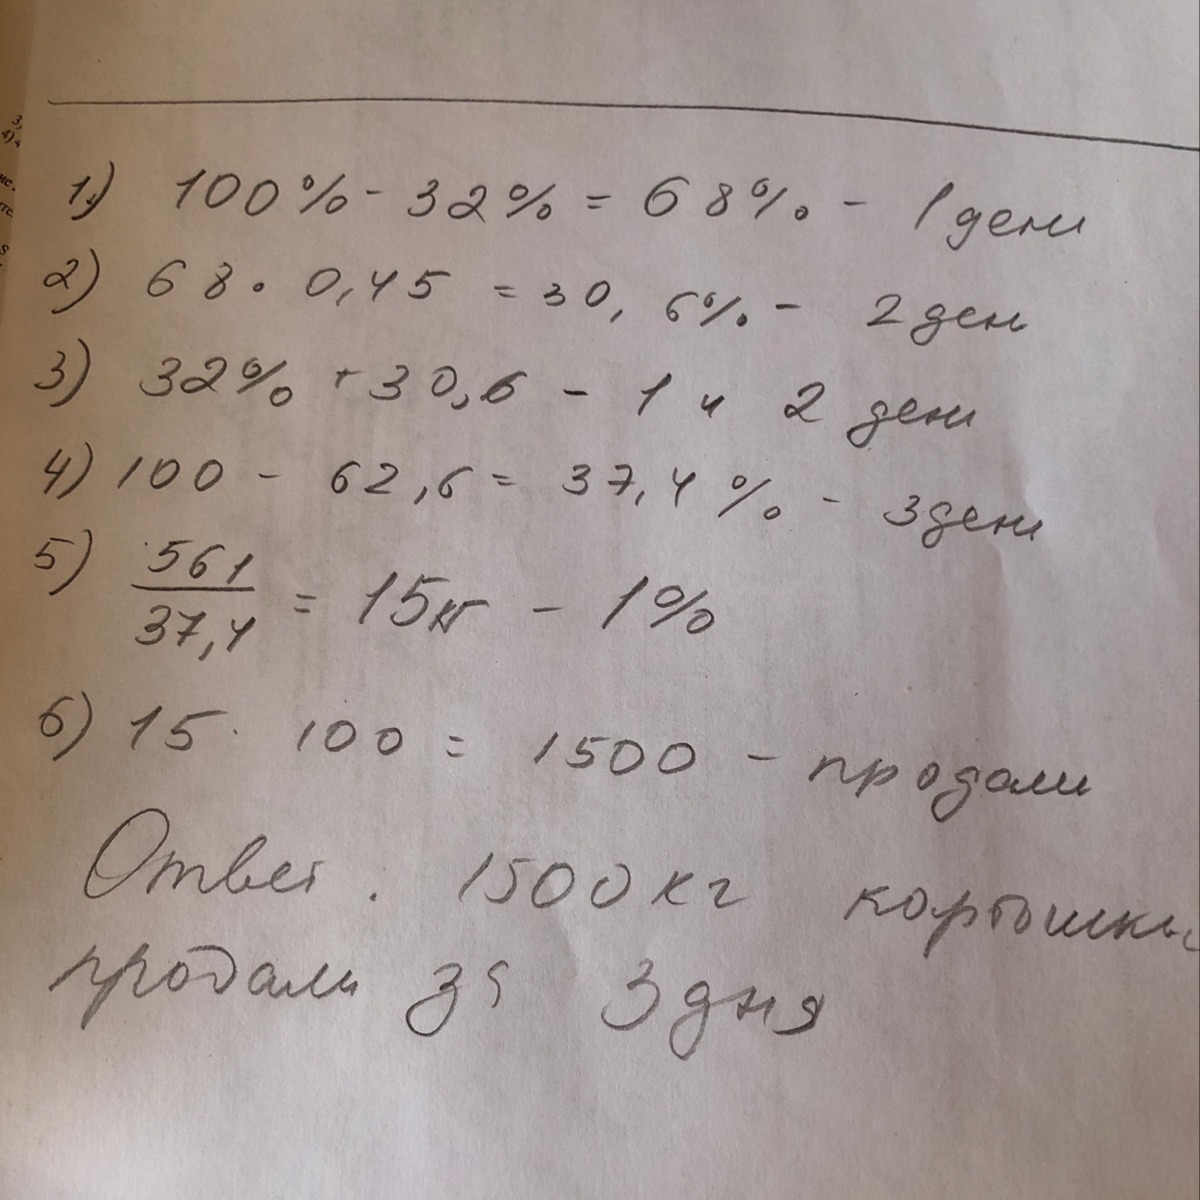 1) 100% - 32% = 68% - 1 день
2) 68 · 0,45 = 30,6% - 2 ден
3) 32% + 30,6 - 1 и 2 день
4) 100 - 62,6 = 37,4% - 3 день
5) 561/37,4 = 15 кг - 1%
6) 15 · 100 = 1500 - продали
Ответ. 1500 кг
продали за 3 дня